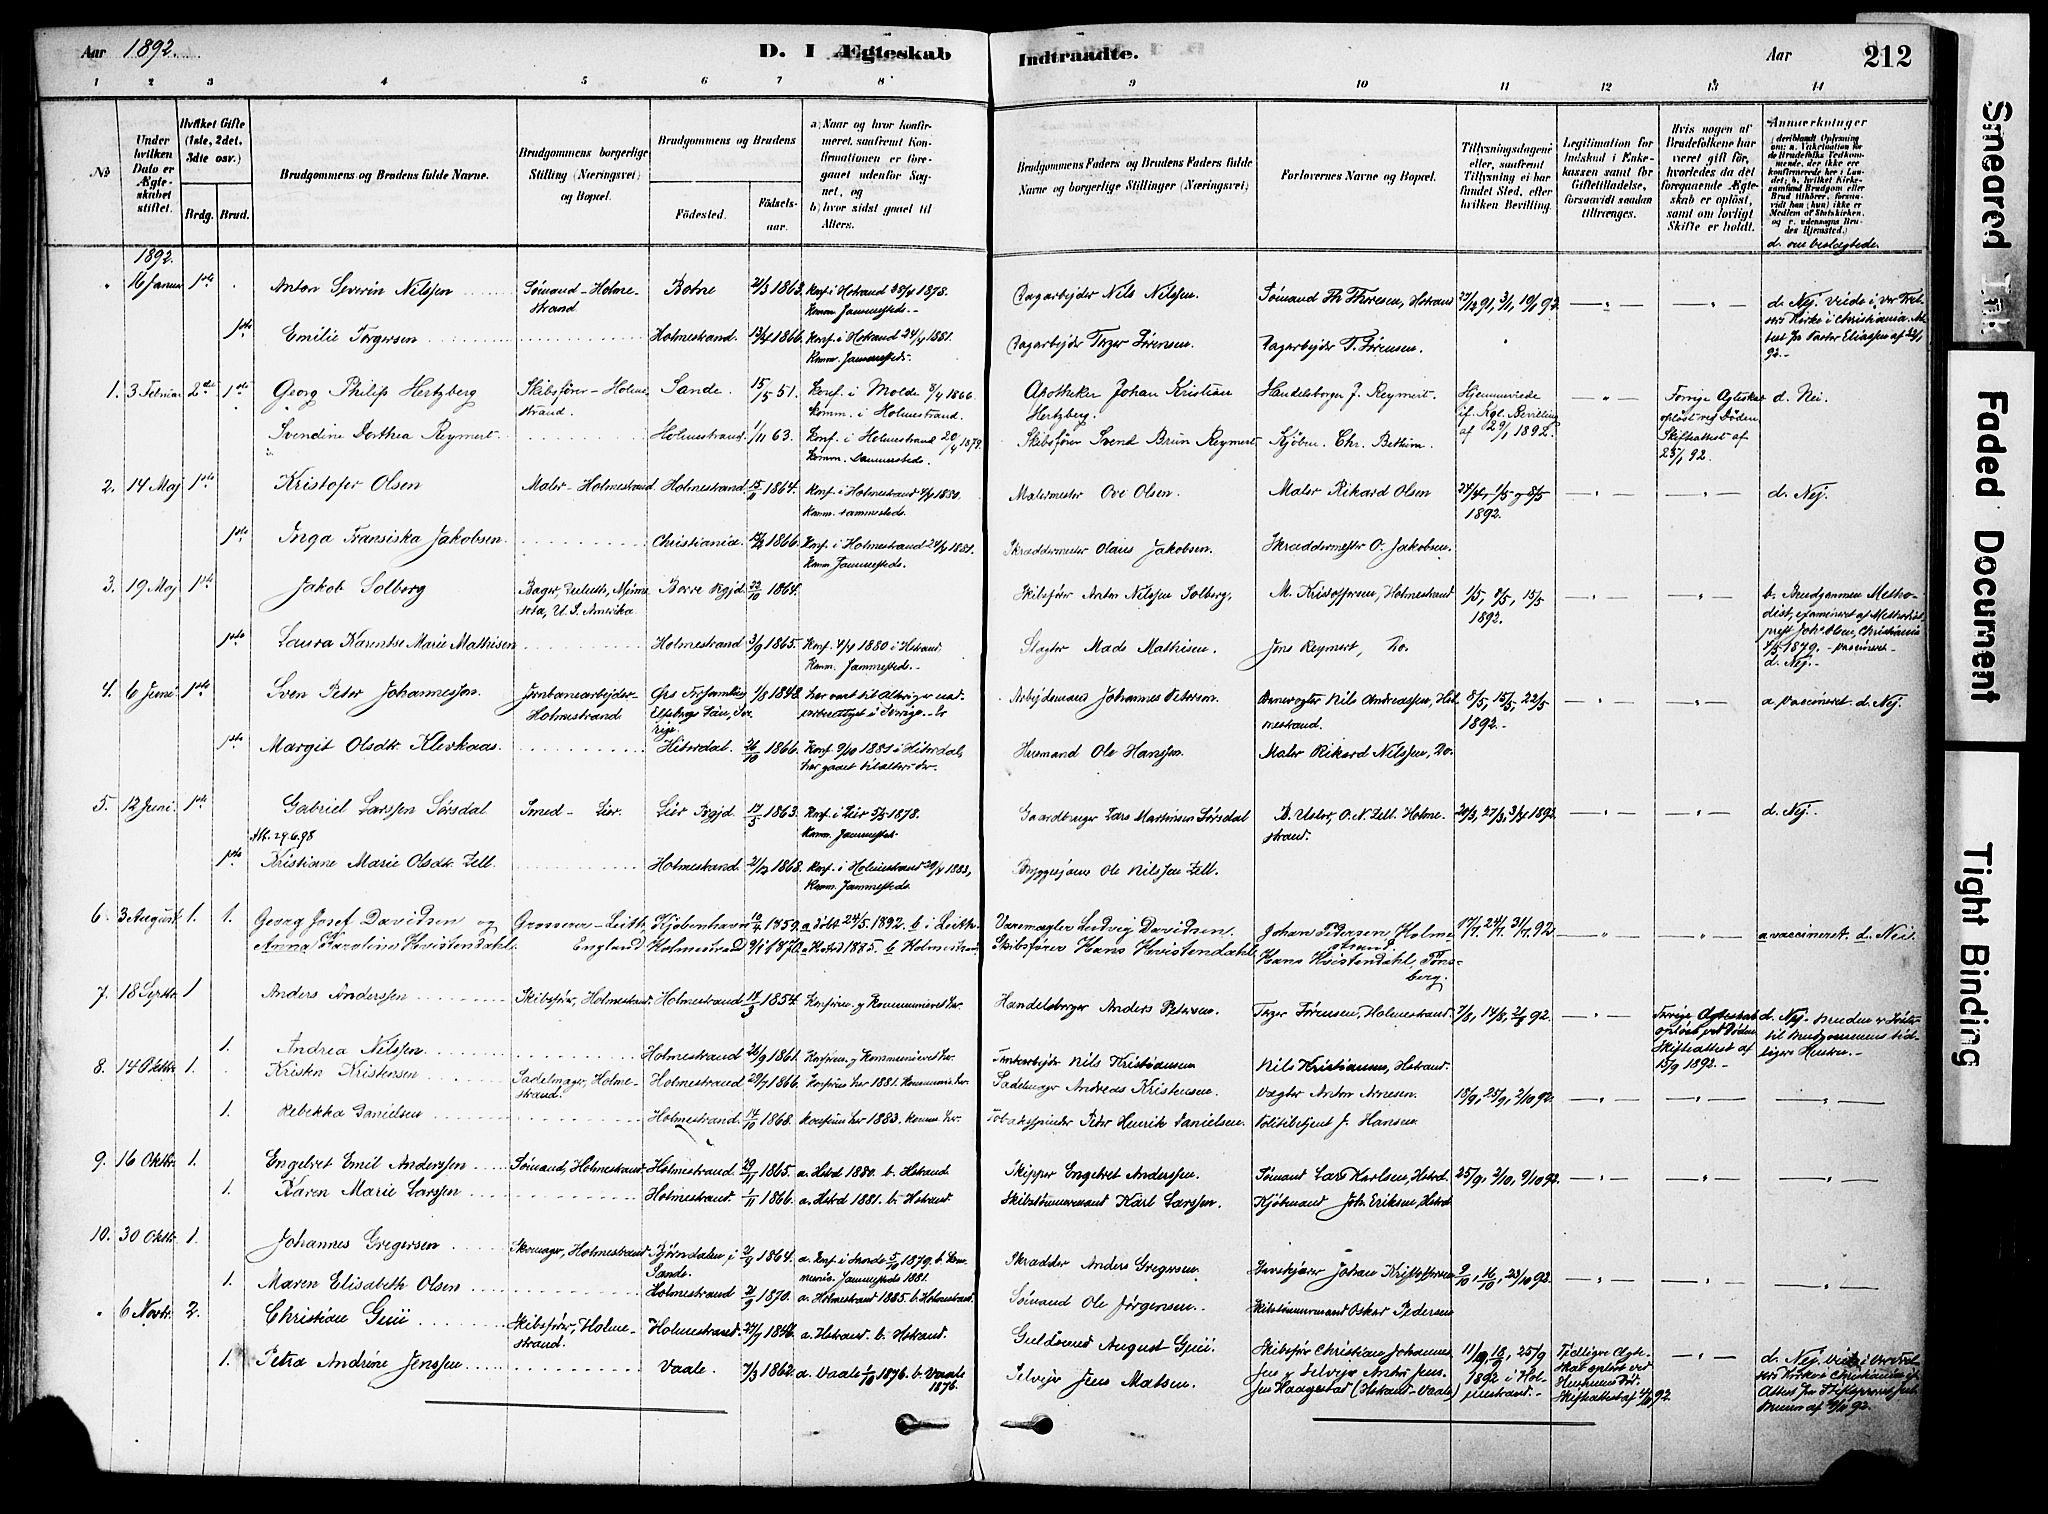 Aar 1892.
D. I Ægteskab
Indtraadte.
Aar
212
1 2 3 4 5 6 7 8
9 10 11 12 13 14
No
Under hvilken Dato er Ægteskabet stiftet.
Hvilket Gifte (1ste, 2det, 3die osv.)
Brdg. Brud.
Brudgommens og Brudens fulde Navne.
Brudgommens borgerlige Stilling (Næringsvei) og Bopæl.
Brudgommens og Brudens
Födested. Födselsaar.
a) Naar og hvor konfirmeret, saafremt Konfirmationen er foregaaet udenfor Sognet, og
b) hvor sidst gaaet til Alters.
Brudgommens Faders og Brudens Faders fulde Navne og borgerlige Stillinger (Næringsvei)
Forlovernes Navne og Bopæl.
Tillysningsdagene eller, saafremt Tillysning ei har fundet Sted, efter hvilken Bevilling.
Legitimation for Indskud i Enkekassen samt for Giftetilladelse, forsaavidt saadan tiltrænges.
Hvis nogen af Brudefolkene har været gift för, hvorledes da det foregaaende Ægteskab er oplöst, samt om lovligt Skifte er holdt.
Anmærkninger
d. om beslægtede.
1892.
" 16 Januar 1ste Anton Severin Nilssen Sömand - Holmestrand Botne 2/3 1863. Konf. i Hstrand 1878. Komm. sammesteds. Dagarbejder Nils Nilssen. Sömand Th. Thoresen, Hstrand
1ste Emilie Torgersen Holmestrand. 1866. Konf. i Hstrand 24/4 1881. Komm. sammesteds. Dagarbejder Torger Sörensen. Dagarbejder T. Sörensen.
1. 3 Februar 2den 1ste Georg Philip Hertzberg Skibsförer - Holmestrand. Sande. 15/5 51. Konf. i Molde 8/4 1866. Komm. i Holmestrand. Apotheker Johan Kristian Hertzberg. Handelsborger J. Reymert. Hjemmeviede if. Kgl. Bevilling af 29/1 1892. Forrige Ægteskab oplöst ved Döden Skifteattest af 25/1 92. d. Nei.
Svendine Dorthea Reymert Holmestrand 1/11 63. Konf. i Holmestrand 20/4 1879. Komm. sammesteds. Skibsförer Svend Brun Reymert Kjöbm. Chr. Bettum.
2. 14 Maj 1ste Kristofer Olsen Maler - Holmestrand Holmestrand 1864. Konf. i Holmestrand 1880. Komm. sammesteds. Malermester Ove Olsen. Maler Rikard Olsen 24/4, 1/5 og 8/5 1892. d. Nej.
1ste Inga Fransiska Jakobsen. Christiania 1866. Konf. i Holmestrand 24/4 1881. Komm. sammesteds. Skræddermester Olaus Jakobsen. Skræddermester O. Jakobsen.
3. 19 Maj 1ste Jakob Solberg Bager, Duluth, Minnesota, U. S. Amerika Borre Prgjd. 22/10 1864. Skibsförer Anton Nilssen Solberg, M. Kristoffersen, Holmestrand 1/5, 8/5, 15/5 1892. b. Brudgommen Methodist, examineret af Methodistprest Joh. Olsen, Christiania 4/5 1879. - vaccineret - d. Nej.
1ste Laura Karentse Marie Mathisen Holmestrand 3/9 1865. Konf. 4/4 1880 i Hstrand. Komm. sammesteds. Slagter Mads Mathisen. Jens Reymert, Do.
4. 6 Juni 1ste Sven Peter Johannessen. Jernbanearbejder - Holmestrand Örs Forsamling Elfsborgs Län, Sverige 1/8 1848. Arbejdsmand Johannes Peterson. Banevogter Nils Andreassen, Holmestrand. 8/5, 15/5, 22/5 1892. a. vaccineret. d. Nej.
1ste Margit Olsdtr. Klevkaas Hiterdal 26/10 1866. Konf. 9/10 1881 i Hiterdal, har gaaet til alters der. Husmand Ole Hanssen. Maler Rikard Nilssen, Do.
5. 12 Juni 1ste Gabriel Larssen Sørsdal Smed - Lier. Lier Prgjd. 17/5 1863. Konf. i Lier 1878. Komm. sammested. Gaardbruger Lars Martinsen Sørsdal B. Uster, O. N. Zell. Holmestrand. 20/3, 27/3, 3/4 1892 d. Nej.
Att. 29.6.98
1ste Kristiane Marie Olsdtr. Zell Holmestrand 2/12 1868. Konf. i Holmestrand 1883, Komm. sammesteds. Bryggesjauer Ole Nilssen Zell.
6. 3 August 1. 1. Georg Josef Davidsen og Grosserer - Leith Kjöbenhavn 1859. a döbt 24/5 1892. b i Leith Varemægler Ludvig Davidsen. Johan Pedersen Holmestrand. 17/7 24/7 31/7 92 a. vaccineret. d. Nei.
Anna Karoline Hvistendahl England Holmestrand 9/1 1870. a Hstrd 1885. b Holmestrand. Skibsförer Hans Hvistendahl, Hans Hvistendahl, Tönsberg.
7. 18 Septbr. 1 Anders Anderssen Skibsförer, Holmestrand. Holmestrand 17/3 1854. Konfirm. og kommuniceret her. Handelsborger Anders Petersen. Torger Sörensen, Holmestrand. 7/8, 14/8, 21/8 92. Forrige Ægteskab oplöst ved Döden. Skifteattest af 15/9 1892. d. Nej. Bruden er Söster til Brudgommens tidligere Hustru.
1. Andrea Nilssen Holmestrand 26/9 1861. Konfirm. og kommuniceret her. Nils Kristiansen Nils Kristiansen, Hstrand.
8. 14 Oktbr. 1. Kristen Kristensen Sadelmager, Holmestrand. Holmestrand 29/7 1866. Konfirm. her 1881. Kommunic. her Sadelmager Andreas Kristensen. Vægter Anton Arnesen. 18/9, 25/9, 2/10 92
1. Rebekka Danielsen Holmestrand. 14/10 1868. Konfirm. her 1883. Komm. her. Tobaksspinder Peter Henrik Danielsen. Politibetjent J. Hansen
9. 16 Oktbr. 1. Engelvet Emil Anderssen Sömand, Holmestrand. Holmestrand 29/11 1865. a. Hstrd 1880. b. Hstrand. Skipper Engelvet Anderssen. Sömand Lars Karlsen, Hstrd. 25/9, 2/10, 9/10 92.
1. Karen Marie Larssen Holmestrand 1/11 1866. a. Hstrd 1881. b. Hstrand Skibstömmermand Karl Larssen. Kjöbmand Joh. Eriksen, Hstrd
10. 30 Oktbr. 1. Johannes Gregersen Skomager, Holmestrand. Bjørndalen i Sande. 2/9 1864. a. Konf. i Sande 5/10 1879. b. Kommunic. sammesteds 1881. Skrædder Anders Gregersen. Johan Kristoffersen 9/10, 16/10, 23/10 92.
1. Maren Elisabeth Olsen Holmestrand 2/9 1870. a. Holmestrand 1885. b. Holmestrand. Sömand Ole Jörgensen. Skibstömmermand Oskar Pedersen
" 6 Novbr. 2. Christian Guii Skibsförer, Holmestrand. Holmestrand. 1846. a. Hstrand. b. Hstrand. Guldsmed August Guii. Skibsförer Christian Johannessen 11/9, 18/9, 25/9 1892 i Holmestrand. Tidligere Ægteskab oplöst ved Hustruens Död. Skifteattest af 4/10 92. d. Nej.
1. Petra Andrine Jenssen Vaale. 7/3 1862. a. Vaale 1/10 1876. b. Vaale 1876. Selveier Jens Matsen. Haagestad (Hstrand - Vaale)
Smeared Ink
Faded Document
Tight Binding